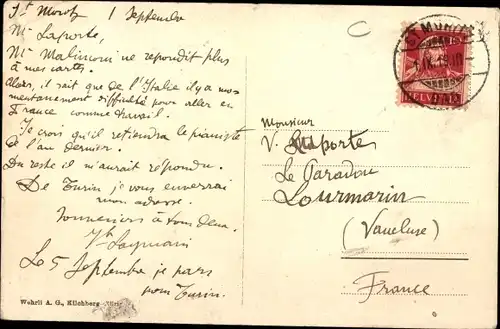 St Moritz 1 Septembre
Mr Laporte,
Mr Malinconi ne repondit plus
à mes cartes.
Alors, il sait que de l'Italie il y a mo-
mentanement difficulté pour aller en
France comme travail.
Je crois qu'il retiendra le pianiste
de l'an dernier.
Du reste il m'aurait répondu.
De Turin je vous enverrai
mon adresse.
à tous deux.
Le 5 Septembre je pars
pour Turin.
Wehrli A. G., Kilchberg
C
ST MORITZ
HELVETIA
Monsieur
V. Laporte
Le Paradou
Lourmarin
(Vaucluse)
France